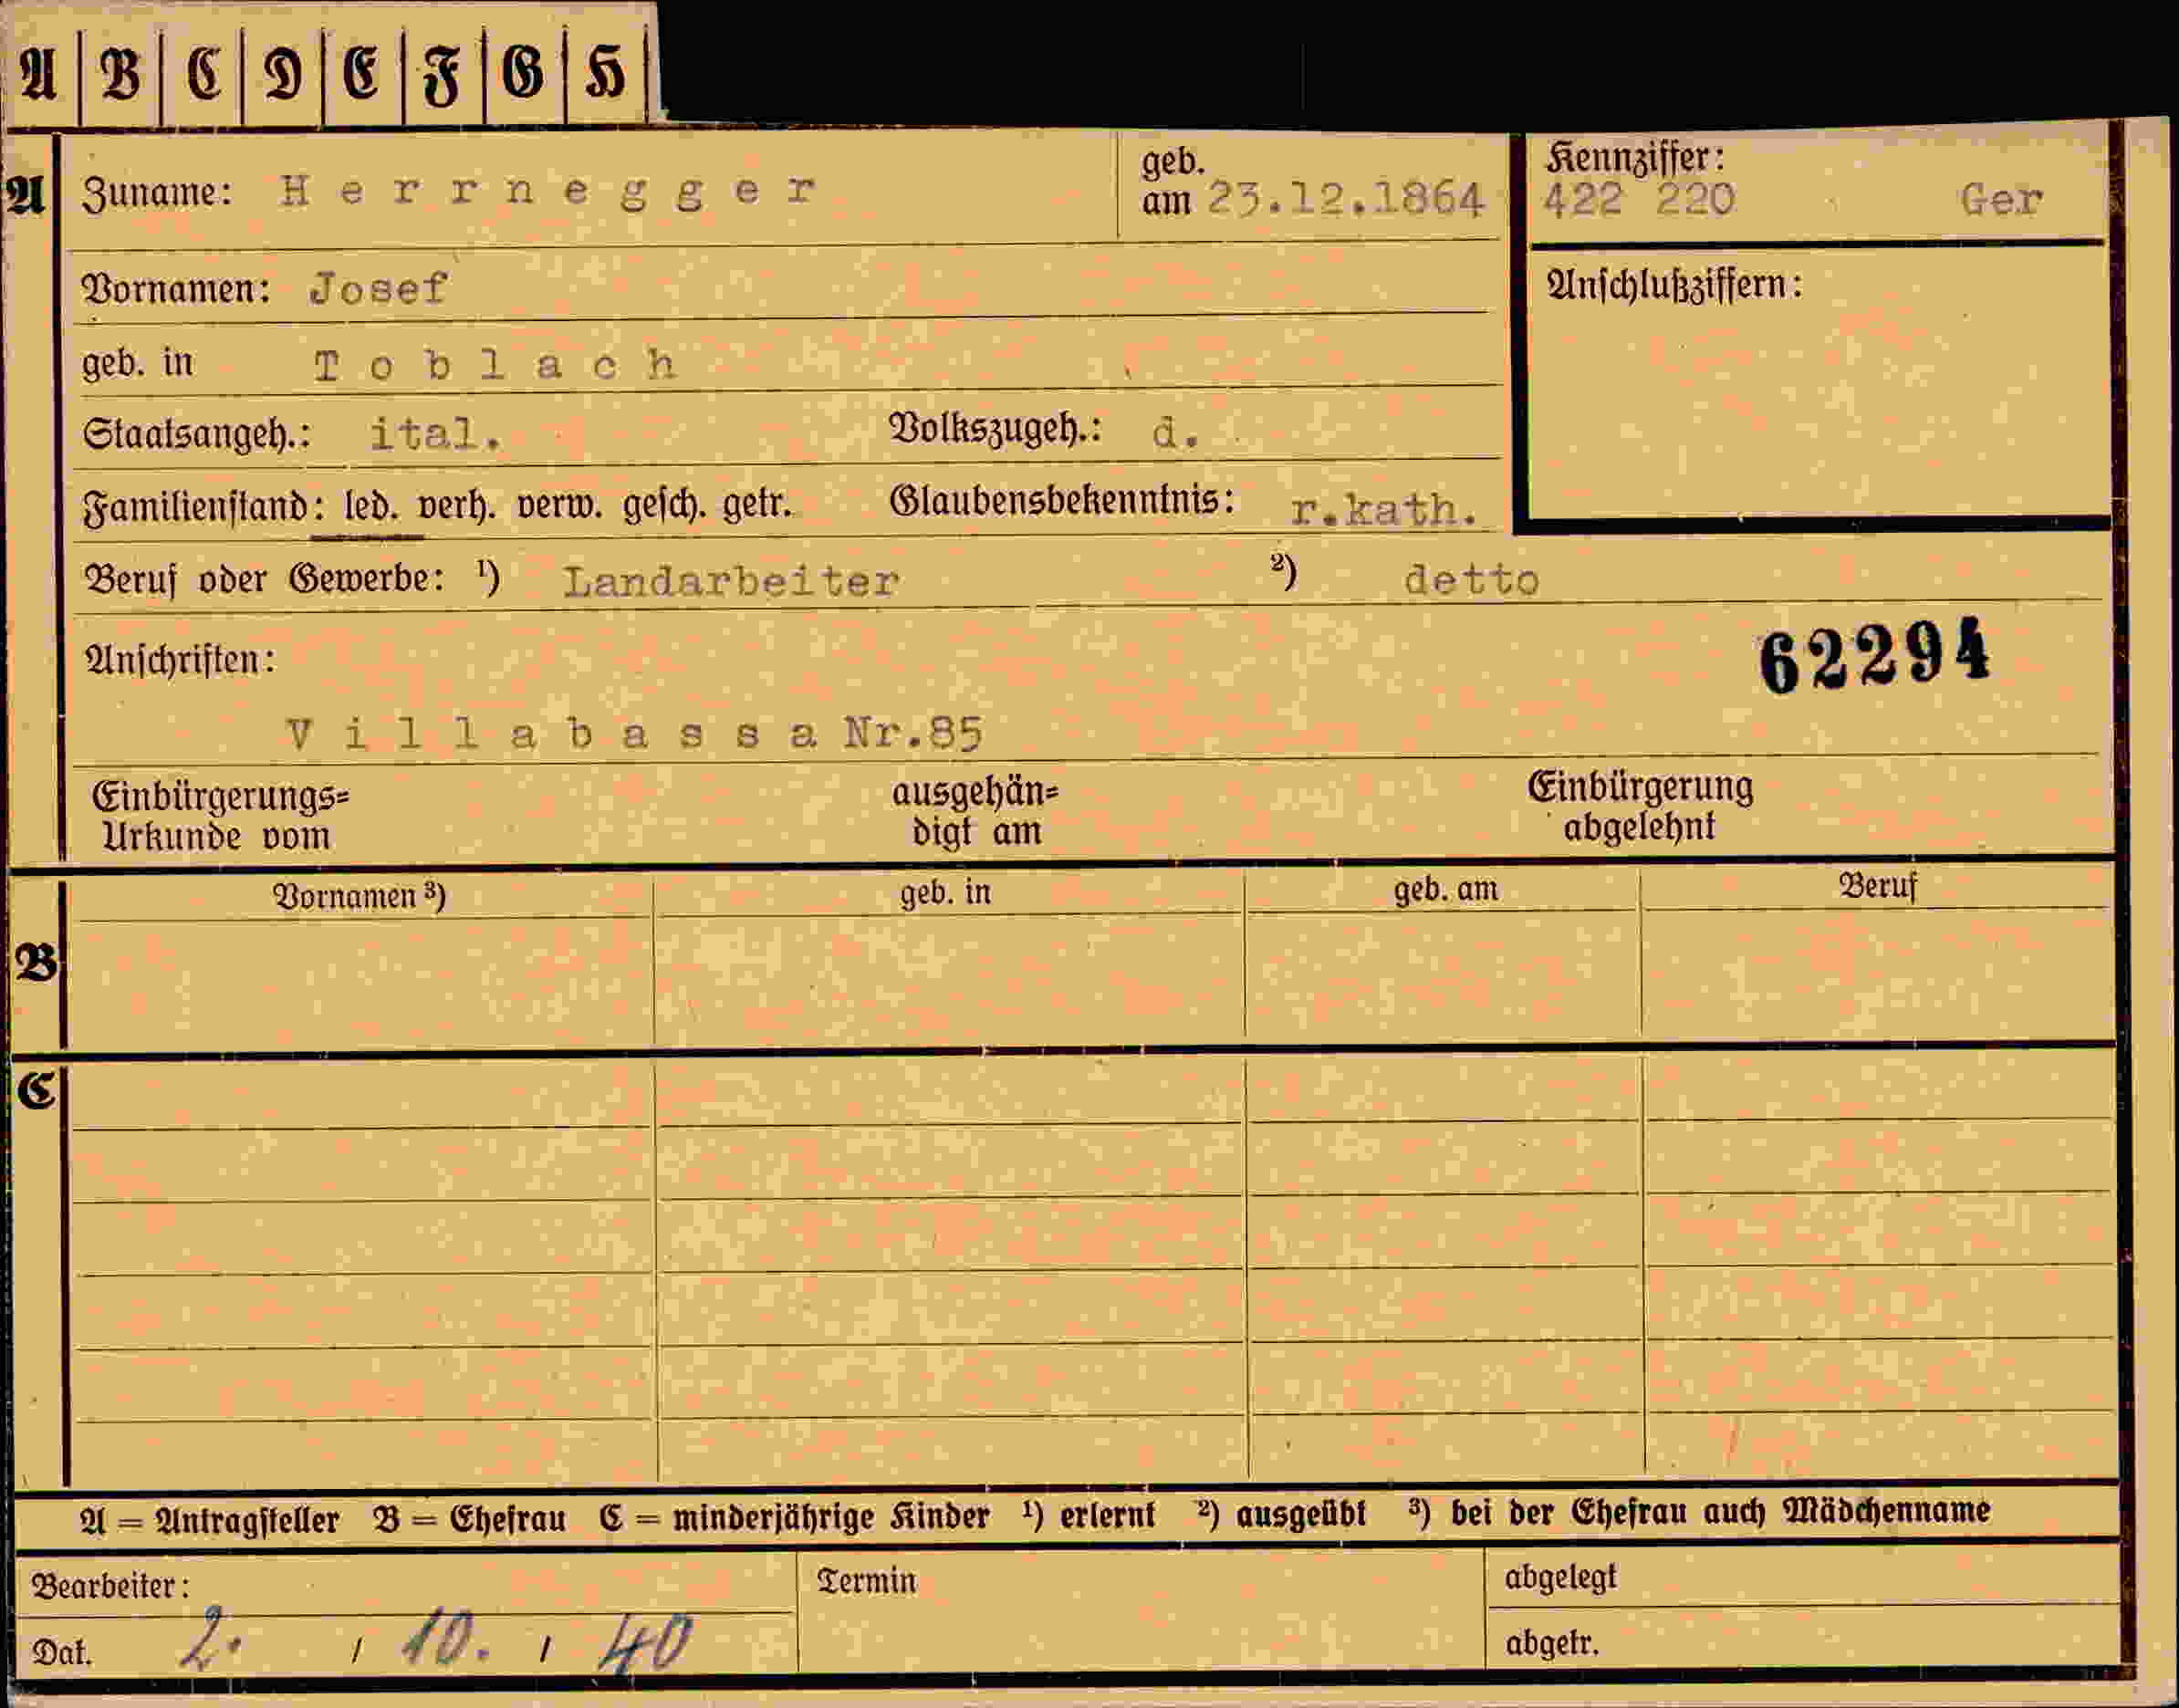 A | B | C | D | E | F | G | H
A Zuname: Herrnegger geb. am 23.12.1864 Kennziffer: 422 220 Ger
Vornamen: Josef Anschlußziffern:
geb. in Toblach
Staatsangeh.: ital. Volkszugeh.: d.
Familienstand: led. verh. verw. gesch. getr. Glaubensbekenntnis: r.kath.
Beruf oder Gewerbe: ¹) Landarbeiter ²) detto
Anschriften: 62294
Villabassa Nr.85
Einbürgerungs= ausgehän= Einbürgerung
Urkunde vom digt am abgelehnt
Vornamen ³) geb. in geb. am Beruf
B
C
A = Antragsteller B = Ehefrau C = minderjährige Kinder ¹) erlernt ²) ausgeübt ³) bei der Ehefrau auch Mädchenname
Bearbeiter: Termin abgelegt
Dat. 2. / 10. / 40 abgetr.